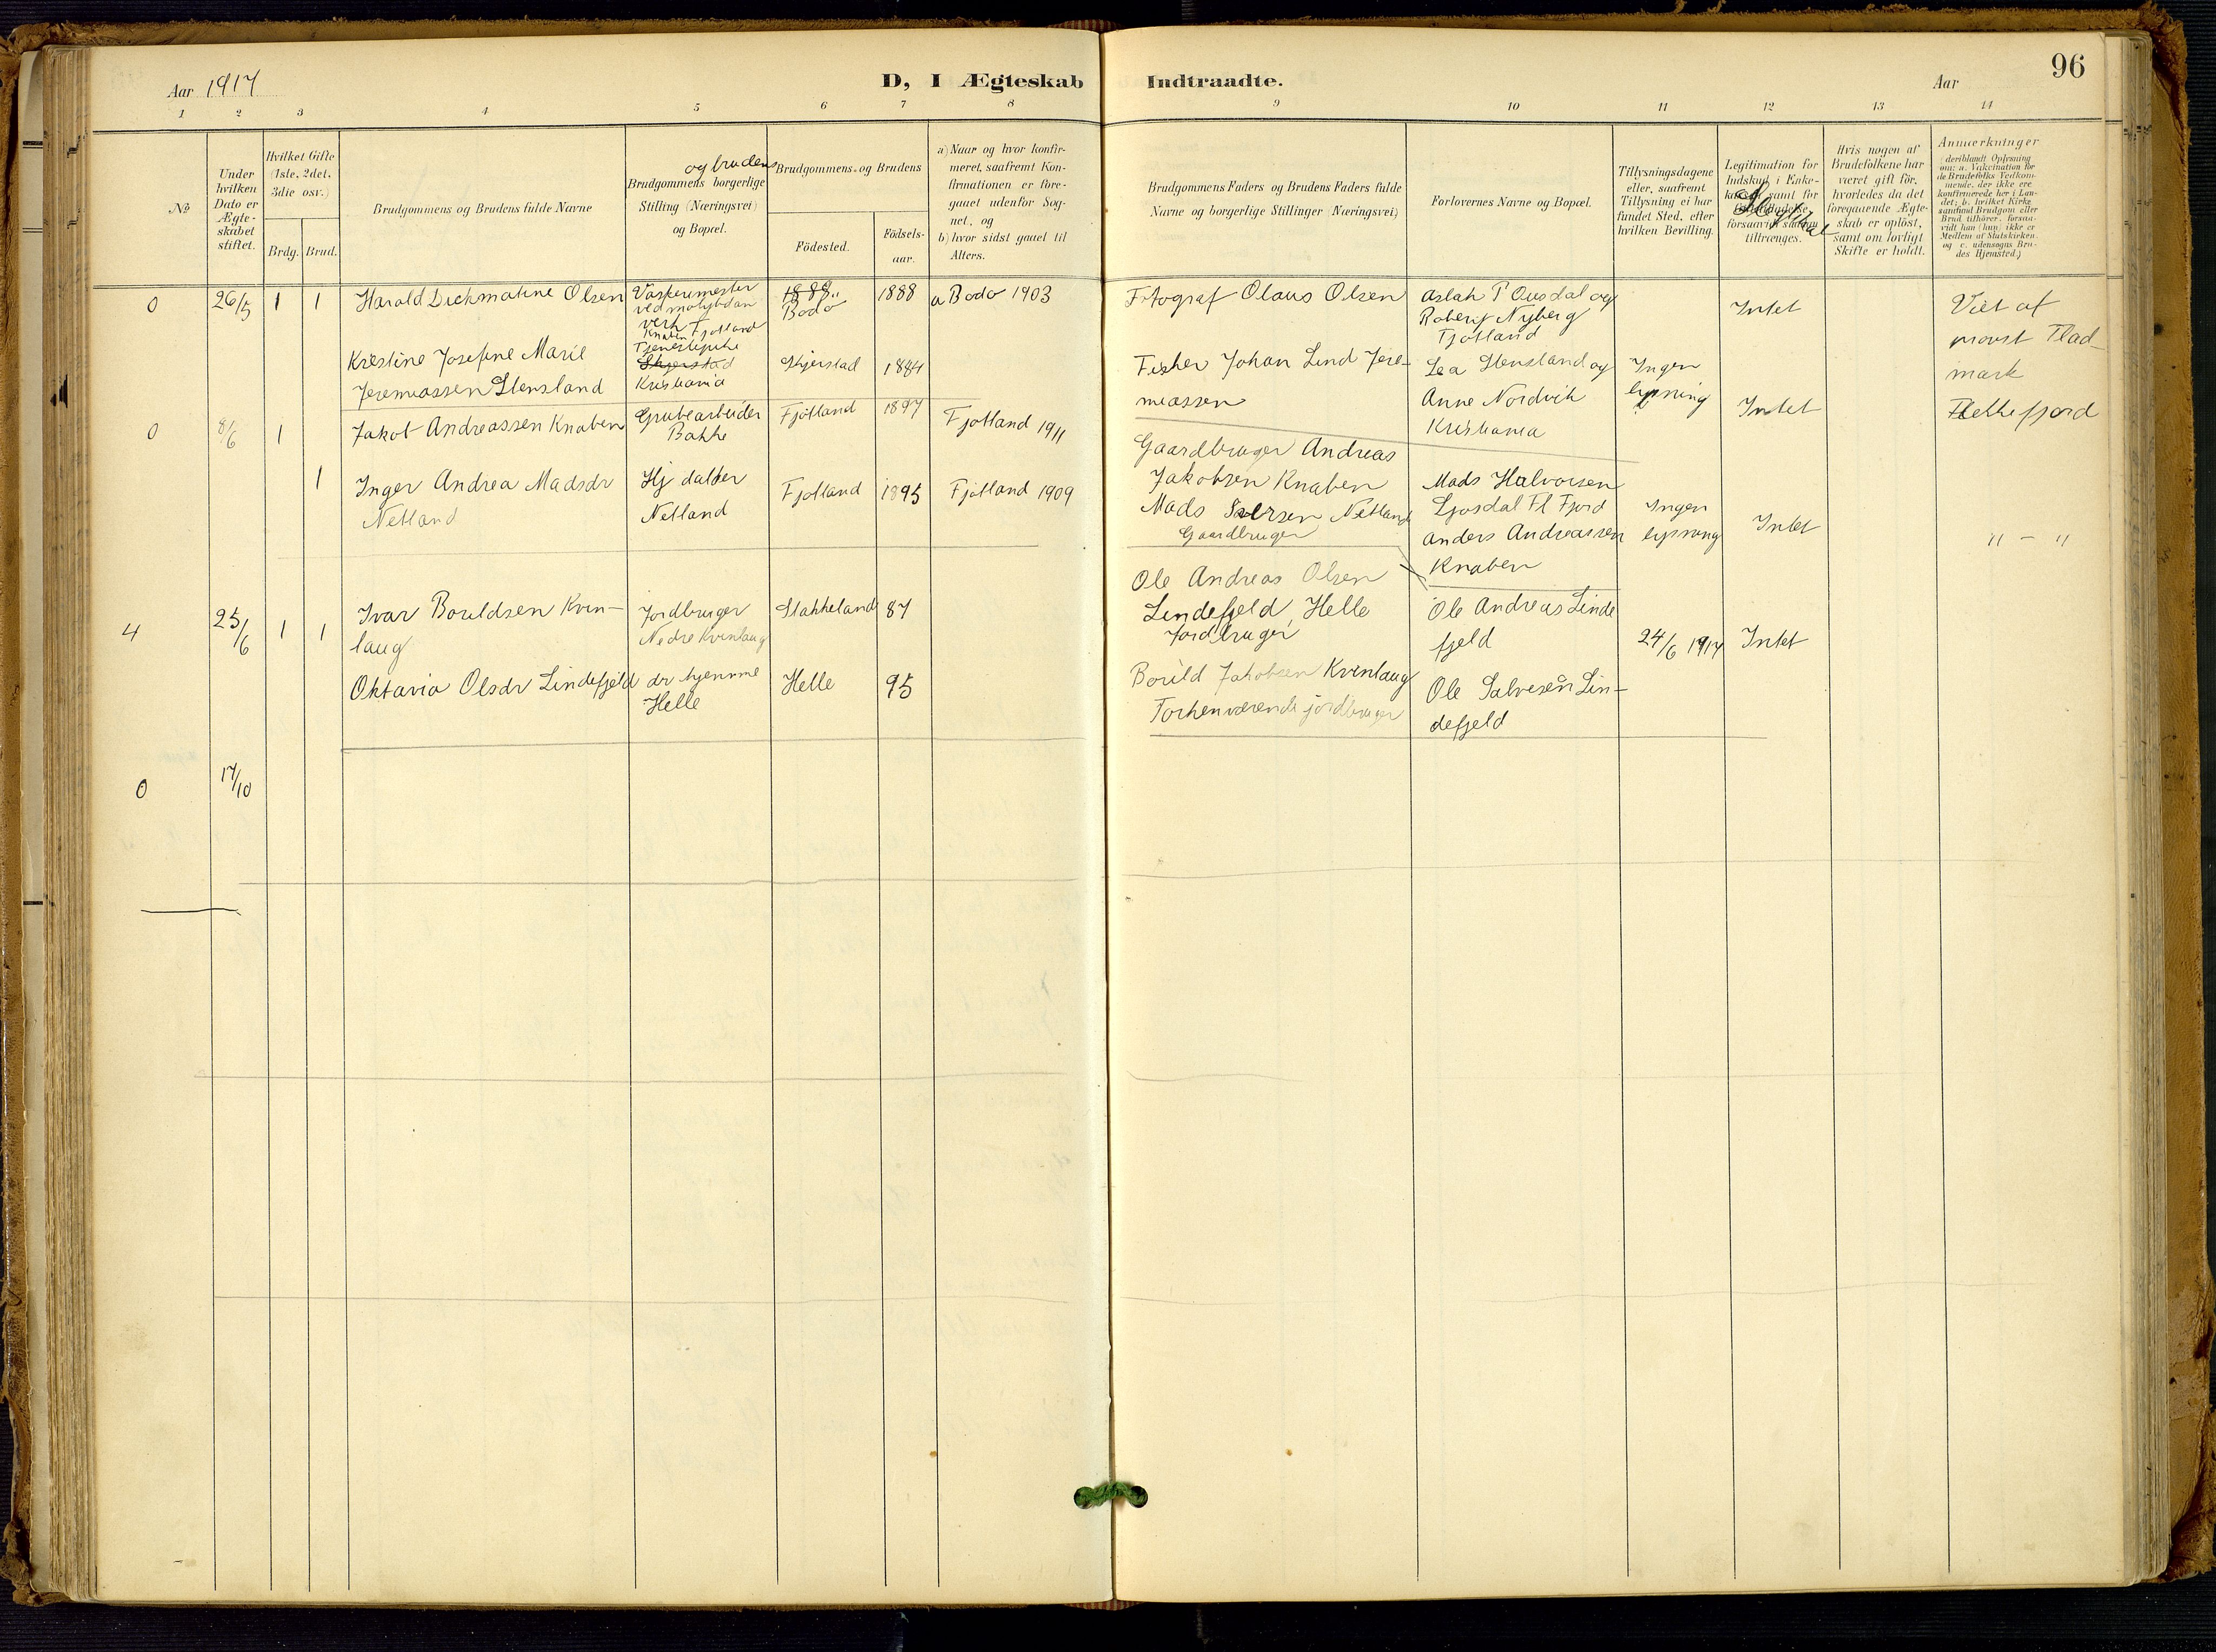 Aar 1917
D, I Ægteskab Indtraadte.
Aar
96
1 2 3 4 5 6 7 8 9 10 11 12 13 14
No
Under
hvilken
Dato er
Ægte-
skabet
stiftet.
Hvilket Gifte
(1ste, 2det,
3die osv.)
Brdg. Brud.
Brudgommens og Brudens fulde Navne
og brudens
Brudgommens borgerlige
Stilling (Næringsvei)
og Bopæl.
Brudgommens og Brudens
Födested.
Födsels-
aar.
a) Naar og hvor konfir-
meret, saafremt Kon-
firmationen er fore-
gaaet udenfor Sog-
net, og
b) hvor sidst gaaet til
Alters.
Brudgommens Faders og Brudens Faders fulde
Navne og borgerlige Stillinger (Næringsvei)
Forlovernes Navne og Bopæl.
Tillysningsdagene
eller, saafremt
Tillysning ei har
fundet Sted, efter
hvilken Bevilling.
Legitimation for
Indskud i Enke-
kassen samt for
forsaavidt saadan
tiltrænges.
Hvis nogen af
Brudefolkene har
været gift för,
hvorledes da det
foregaaende Ægte-
skab er oplöst,
samt om lovligt
Skifte er holdt.
Anmærkninger
(deriblandt Oplysning
om: a. Vakcination for
de Brudefolks Vedkom-
mende, der ikke ere
konfirmerede her i Lan-
det; b. hvilket Kirke-
samfund Brudgom eller
Brud tilhörer, forsaa-
vidt han (hun) ikke er
Medlem af Statskirken,
og c. udensogns Bru-
des Hjemsted.)
0 26/5 1 1 Harald Dickmatine Olsen
Vaskerimester
ved molybdæn
verk Fjotland
Knaben
1888
Bodø
1888
a Bodø 1903
Fotograf Olaus Olsen
Aslak T Ousdal og
Robert Nyberg
Fjotland
Intet
Viet af
provst Flad-
mark
Flekkefjord
Kristine Josefine Marie
Jeremiassen Stensland
Tjenestepike
Skjerstad
Kristiania
Skjerstad
1884
Fisker Johan Lind Jere-
miassen
Lea Stensland og
Anne Nordvik
Kristiania
Ingen
lysning
Intet
0 8/6 1 Jakob Andreassen Knaben
Grubearbeider
Bakke
Fjotland
1897
Fjotland 1911
Gaardbruger Andreas
Jakobsen Knaben
Mads Halvorsen
Ljosdal Fl Fjord
1 Inger Andrea Madsdr
Netland
Hj datter
Netland
Fjotland
1895
Fjotland 1909
Mads Netland
Gaardbruger
Anders Andreassen
Knaben
Ingen
lysning
Intet
" — "
4 25/6 1 1 Ivar Bouldsen Kvin-
laug
Jordbruger
Nedre Kvinlaug
Stakkeland
87
Ole Andreas Olsen
Lindefjeld, Helle
Jordbruger
Ole Andreas Linde
fjeld
24/6 1917
Intet
Oktavia Olsdr Lindefjeld
dr hjemme
Helle
Helle
95
Bould Jakobsen Kvinlaug
Forhenværende jordbruger
Ole Salvesen Lin-
defjeld
0 17/10